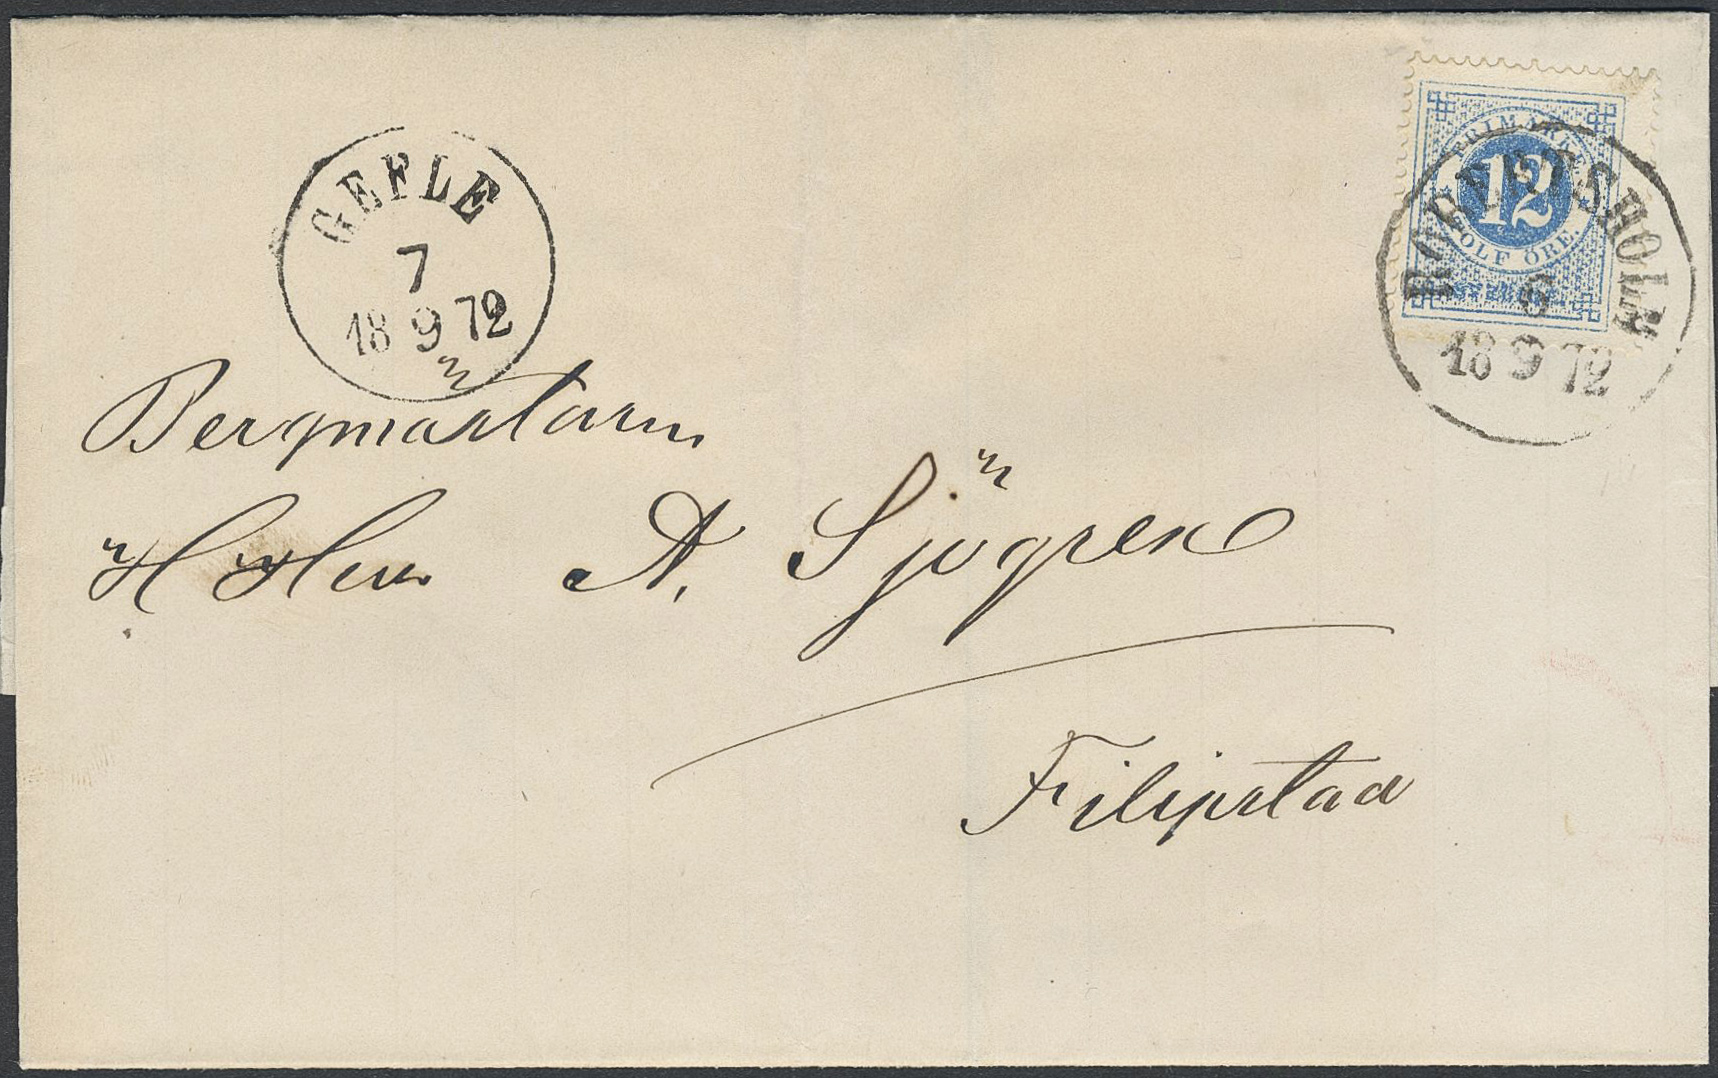 GEFLE
7
18 9 72
FRIMÄRKE
12
TOLF ÖRE.
ROBERTSHOLM
6
18 9 72
Bergmästaren
H Herr A. Sjögren
Filipstad